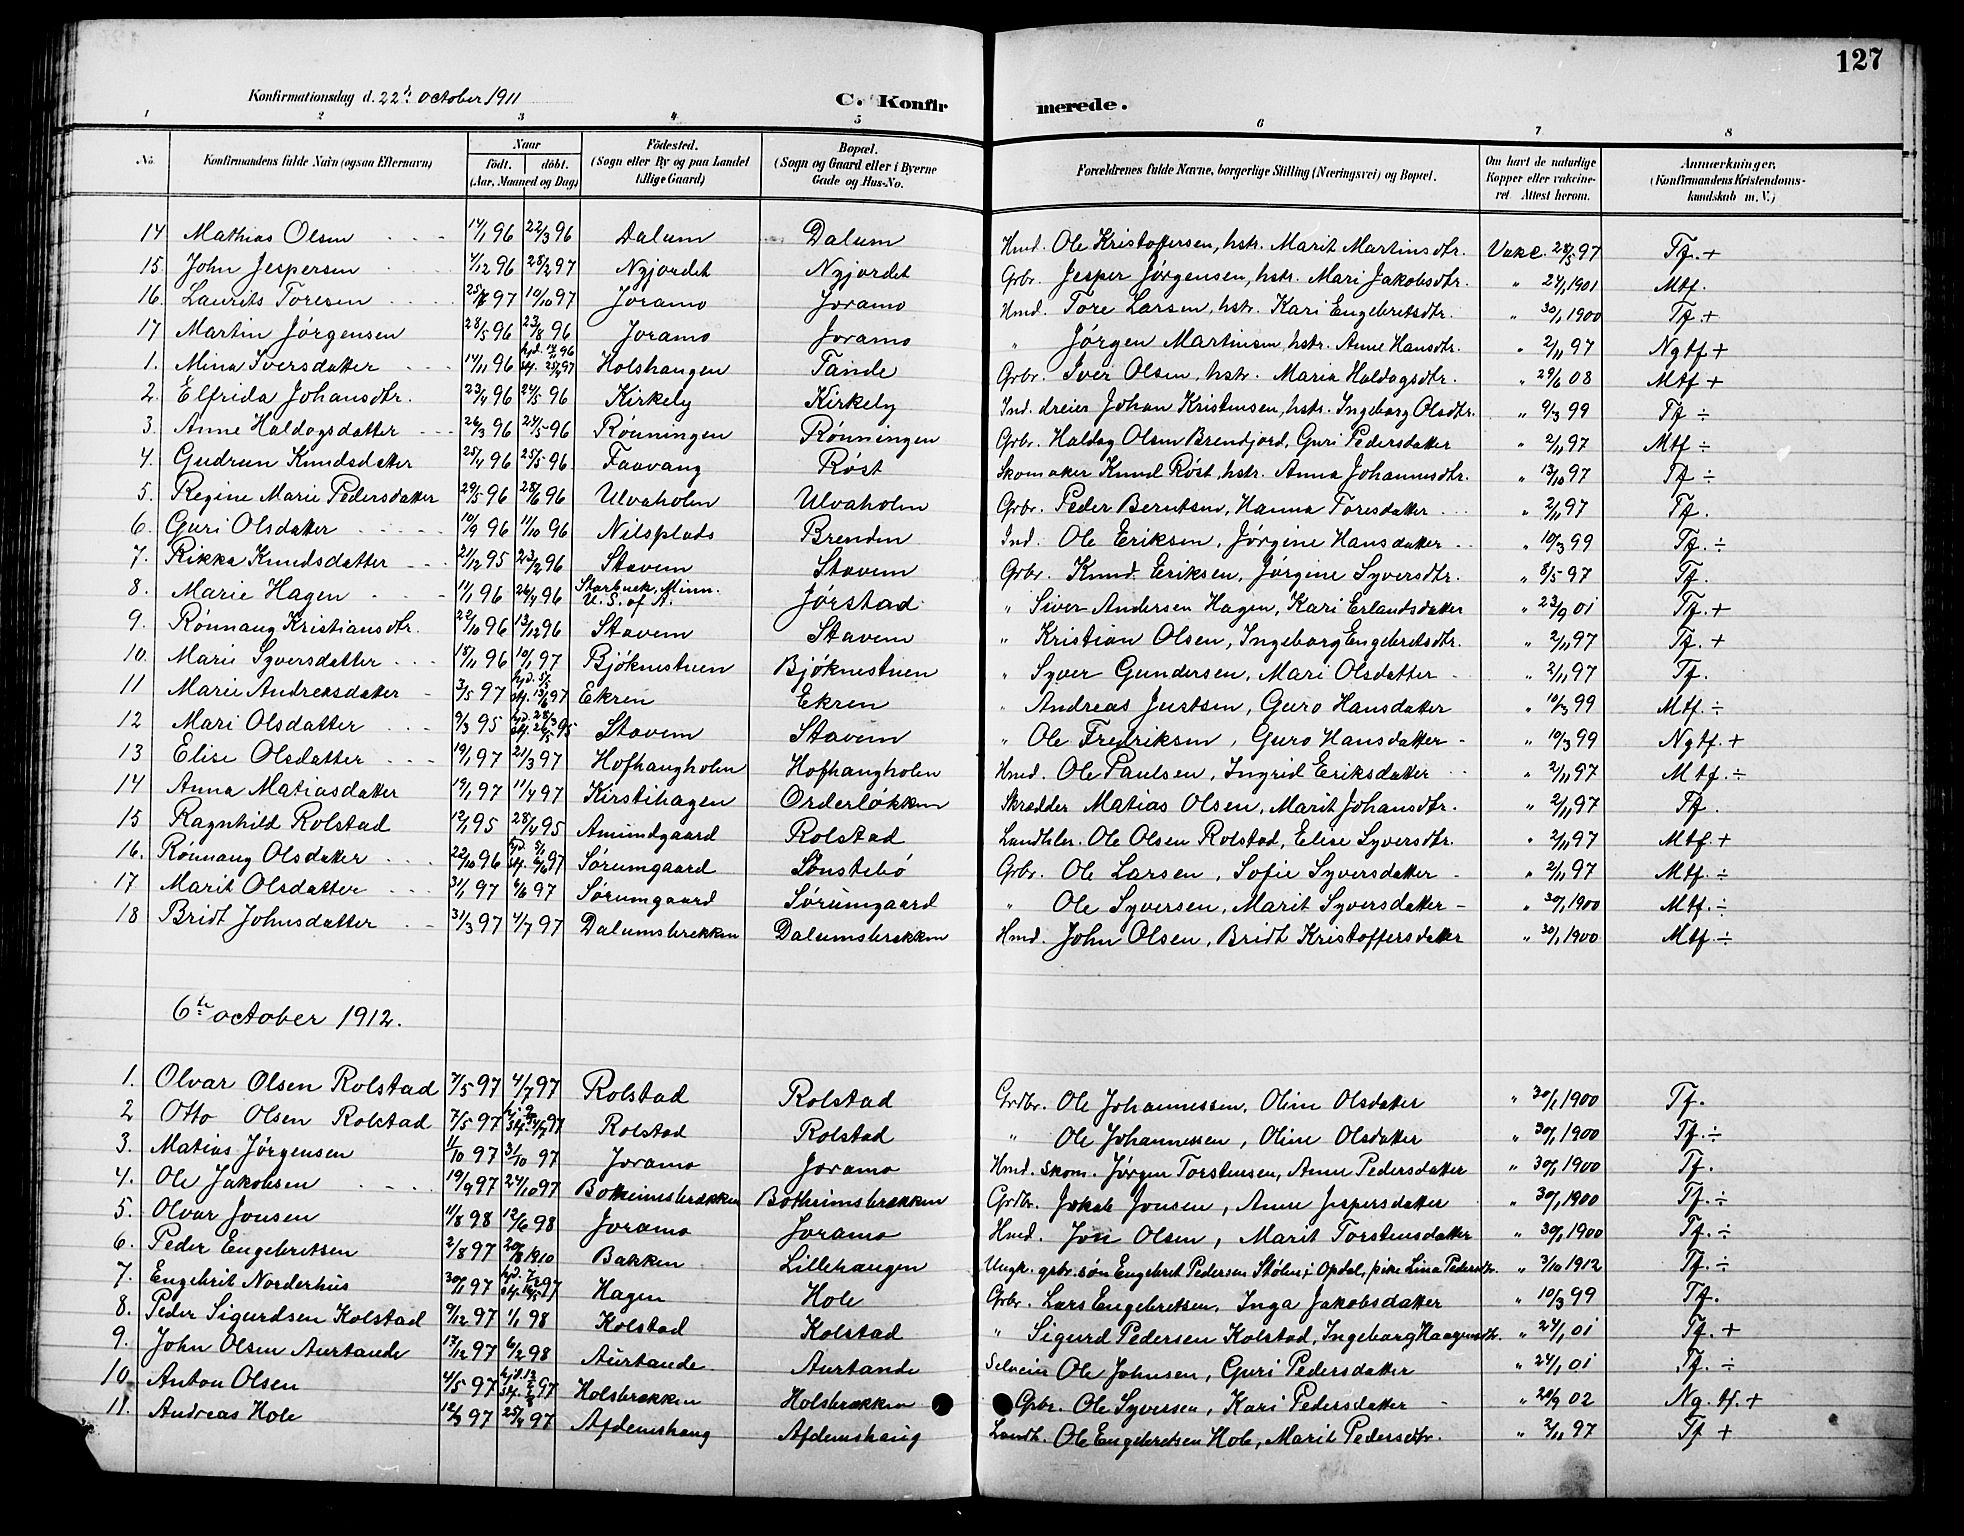 127
Konfirmationsdag d. 22de october 1911 C. Konfirmerede.
1 2 3 4 5 6 7 8
No. Konfirmandens fulde Navn (ogsaa Efternavn) Naar født. døbt. (Aar, Maaned og Dag) Fødested. (Sogn eller By og paa Landet tillige Gaard) Bopæl. (Sogn og Gaard eller i Byerne Gade og Hus-No. Forældrenes fulde Navne, borgerlige Stilling (Næringsvei) og Bopæl. Om havt de naturlige Kopper eller vakcineret Attest herom. Anmærkninger. (Konfirmandens Kristendomskundskab m. V.)
14 Mathias Olsen 14/1 96 22/3 96 Dalum Dalum Hmd. Ole Kristoffersen, hstr. Marit Martinsdtr. Vakc. 28/5 97 Tf. +
15. John Jespersen 4/12 96 28/2 97 Nyjordet Nyjordet Grbr. Jesper Jørgensen, hstr. Mari Jakobsdtr. " 24/1 1901 Mtf.
16. Laurits Toresen 97 10/10 97 Joramo Joramo Hmd. Tore Larsen, hstr. Kari Engebretsdtr. " 30/1 1900 Tf. +
17 Martin Jørgensen 28/5 96 23/8 96 Joramo Joramo " Jørgen Martinsen, hstr. Anne Hansdtr. " 2/11 97 Ngtf +
1. Mina Iversdatter 14/11 96 Holshaugen Tande Grbr. Iver Olsen, hstr. Maria Haldogsdtr. " 29/6 08 Mtf +
2. Elfrida Johansdtr. 23/4 96 24/5 96 Kirkely Kirkely Ind. dreier Johan Kristensen, hstr. Ingeborg Olsdtr. " 9/3 99 Tf ÷
3. Anne Haldogsdatter 26/3 96 24/5 96 Rønningen Rønningen Grbr. Haldog Olsen Brendjord, Guri Pedersdatter " 2/11 97 Mtf ÷
4. Gudrun Knudsdatter 25/4 96 25/5 96 Faavang Røst Skomaker Knud Røst, hstr. Anna Johannesdtr. " 13/10 97 Tf ÷
5. Regine Marie Pedersdatter 29/5 96 28/6 96 Ulvaholm Ulvaholm Grbr. Peder Berntsen, Hanna Toresdatter " 2/11 97 Tf.
6. Guri Olsdatter 10/9 96 11/10 96 Nilsplads Brenden Ind. Ole Eriksen, Jørgine Hansdatter " 10/3 99 Tf. ÷
7. Rikka Knudsdatter 21/12 95 23/2 96 Stavem Stavem Grbr. Knud Eriksen, Jørgine Syversdtr. " 8/5 97 Tf.
8. Marie Hagen 14/1 96 26/4 96 Starbuck, Minn. U. S. of A. Jørstad " Siver Andersen Hagen, Kari Erlandsdatter " 23/9 01 Tf. +
9. Rønnaug Kristiansdtr. 22/10 96 13/12 96 Stavem Stavem " Kristian Olsen, Ingeborg Engebretsdtr. " 2/11 97 Tf. +
10. Marie Syversdatter 18/11 96 10/1 97 Bjøknestuen Bjøknestuen " Syver Gundersen, Mari Olsdatter " 2/11 97 Tf.
11 Marie Andreasdatter 3/5 97 Ekren Ekren " Andreas Jurtsen, Guro Hansdatter " 10/3 99 Mtf. ÷
12 Mari Olsdatter 9/3 95 Stavem Stavem " Ole Fredriksen, Guro Hansdatter " 10/3 99 Ngtf. +
13 Elise Olsdatter 19/1 97 21/3 97 Hofhaugholen Hofhaugholen Hmd. Ole Paulsen, Ingrid Eriksdatter " 2/11 97 Mtf. ÷
14 Anna Matiasdatter 19/1 97 11/4 97 Kirstihagen Orderløkken Skrædder Matias Olsen, Marit Johansdtr. " 2/11 97 Tf.
15 Ragnhild Rolstad 12/1 95 28/4 95 Amundgaard Rolstad Landhlr. Ole Olsen Rolstad, Elise Syversdtr. " 2/11 97 Mtf +
16. Rønnaug Olsdatter 22/10 96 Sørumgaard Lønstebø Grbr. Ole Larsen, Sofie Syversdatter " 2/11 97 Mtf. ÷
17 Marit Olsdatter 31/1 97 6/6 97 Sørumgaard Sørumgaard " Ole Syversen, Marit Syversdatter " 30/1 1900 Mtf. ÷
18 Bridt Johnsdatter 31/3 97 4/7 97 Dalumsbrækken Dalumsbrækken Hmd. John Olsen, Bridt Kristoffersdatter " 30/1 1900 Mtf ÷
6te october 1912.
1. Olvar Olsen Rolstad 7/5 97 4/7 97 Rolstad Rolstad Grdbr. Ole Johannessen, Oline Olsdatter " 30/1 1900 Tf.
2 Otto Olsen Rolstad 7/5 97 Rolstad Rolstad " Ole Johannessen, Oline Olsdatter " 30/1 1900 Tf. ÷
3. Matias Jørgensen 11/10 97 31/10 97 Joramo Joramo Hmd. skom. Jørgen Torstensen, Anne Pedersdatter " 30/1 1900 Tf.
4. Ole Jakobsen 19/9 97 24/10 97 Botheimsbrækken Botheimsbrækken Grdbr. Jakob Jonsen, Anne Jespersdatter " 30/1 1900 Tf. ÷
5. Olvar Jonsen 11/8 98 12/6 98 Joramo Joramo Hmd. Jon Olsen, Marit Torstensdatter " 30/1 1900 Tf. ÷
6. Peder Engebretsen 2/8 97 20/8 1910 Bakken Lillehaugen Ungk. grbr. søn Engebret Pedersen Stølen, i Opdal, pike Lina Pedersdtr. " 3/10 1912 Tf. ÷
7. Engebrit Norderhus 30/1 97 Hagen Hole Grbr. Lars Engebretsen, Inga Jakobsdatter " 10/3 99 Tf.
8. Peder Sigurdsen Kolstad 9/12 97 1/1 98 Kolstad Kolstad " Sigurd Pedersen Kolstad, Ingeborg Haagensdtr. " 24/1 01 Tf. +
9. John Olsen Aurtande 17/12 97 6/2 98 Aurtande Aurtande Selveier Ole Johnsen, Guri Pedersdatter " 24/1 01 Tf. ÷
10. Anton Olsen 4/5 97 Holsbrækken Holsbrækken Grbr. Ole Syversen, Kari Pedersdatter " 20/9 02 Ng. tf. +
11. Andreas Hole 12/2 97 25/4 97 Afdemshaug Afdemshaug Landh. Ole Engebretsen Hole, Marit Pedersdtr. " 2/11 97 Tf +